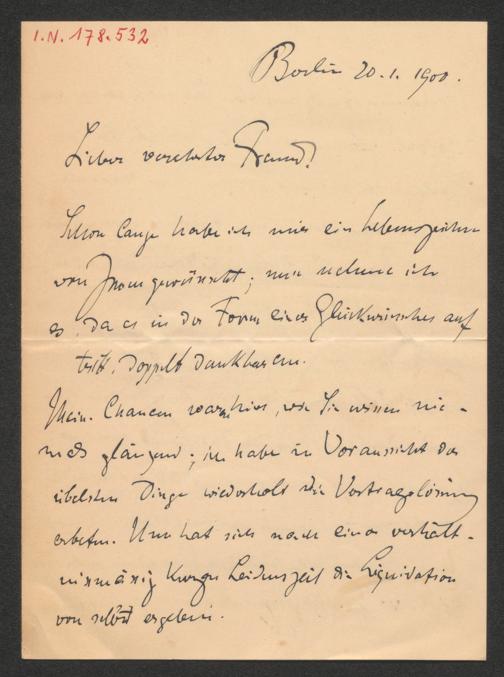 I.N. 178.532
Berlin 20.1.1900.
Lieber verehrter Freund!
Schon lange habe ich mir ein Lebenszeichen
von Ihnen gewünscht; nun nehme ich
es, da es in der Form eines Glückwunsches auf
tritt, doppelt dankbar an.
Mein. Chancen waren hier, wie Sie wissen nie-
mals glänzend; ich habe in Voraussicht der
übelsten Dinge wiederholt die Vertragslösung
erbeten. Nun hat sich nach einer verhält-
nismäsig kurzen Leidenszeit die Liquidation
von selbst ergeben.